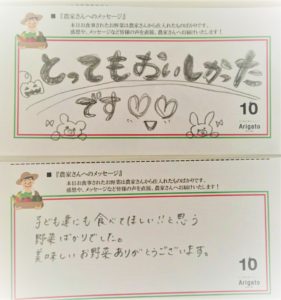 ■『農家さんへのメッセージ』
本日お食事されたお野菜は農家さんから仕入れたものばかりです。
感想や、メッセージなど皆様の声を直接、農家さんへお届けいたします！
とってもおいしかった
です♡♡
10
Arigato
■『農家さんへのメッセージ』
本日お食事されたお野菜は農家さんから仕入れたものばかりです。
感想や、メッセージなど皆様の声を直接、農家さんへお届けいたします！
子ども達にも食べてほしい!!と思う
野菜ばかりでした。
美味しいお野菜ありがとうございます。
10
Arigato